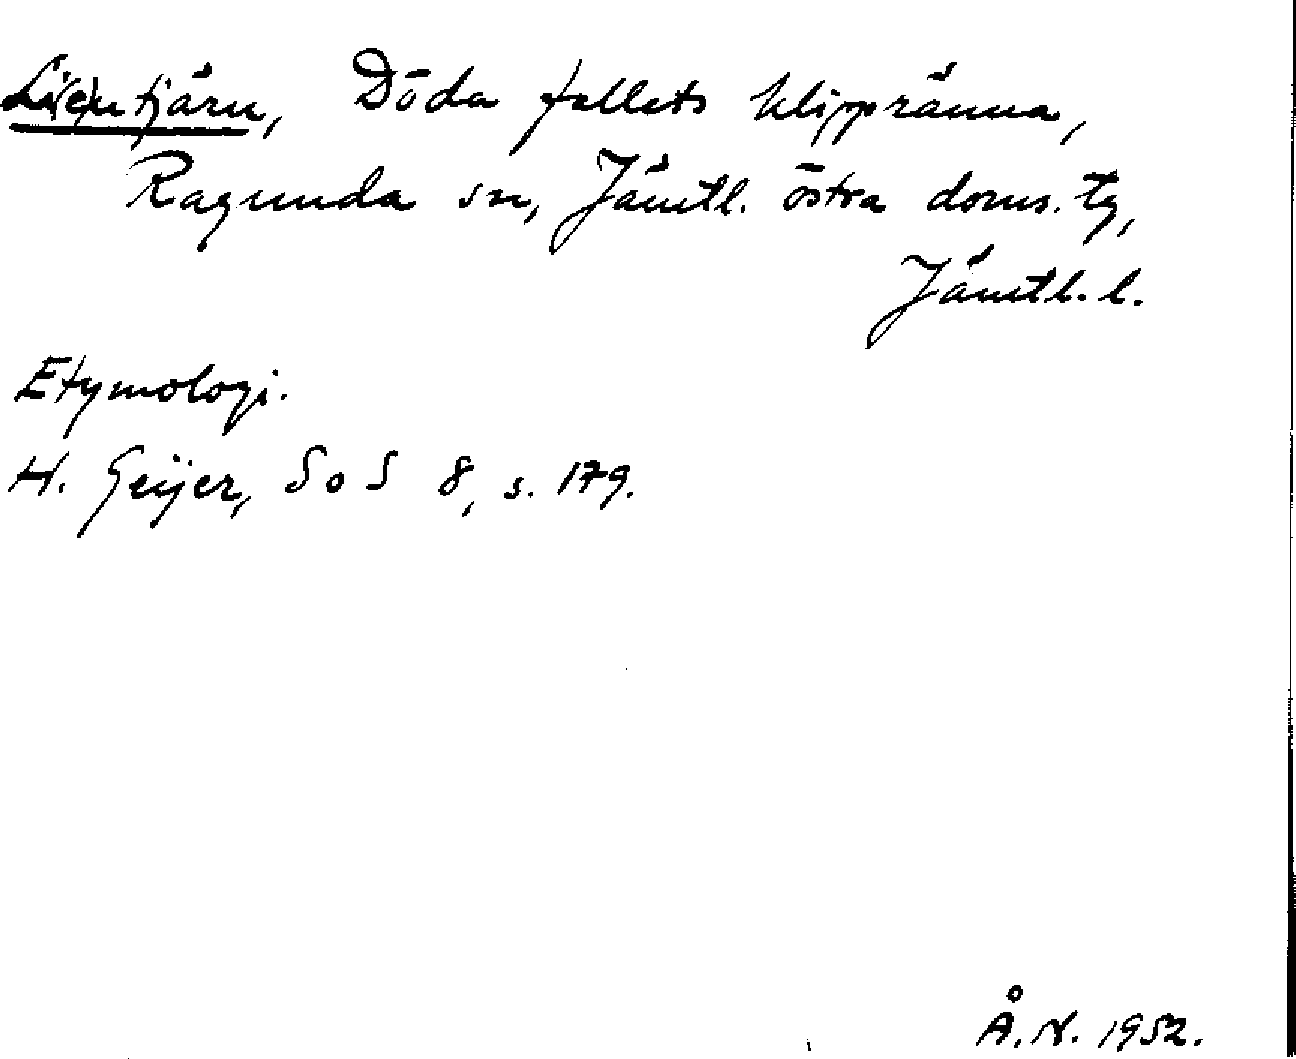 Li(e)ntjärn, Döda fallets klippränna,
Ragunda sn, Jämtl. östra doms. tg,
Jämtl. l.
Etymologi.
H. Geijer, SoS 8, s. 179.
Å. N. 1952.